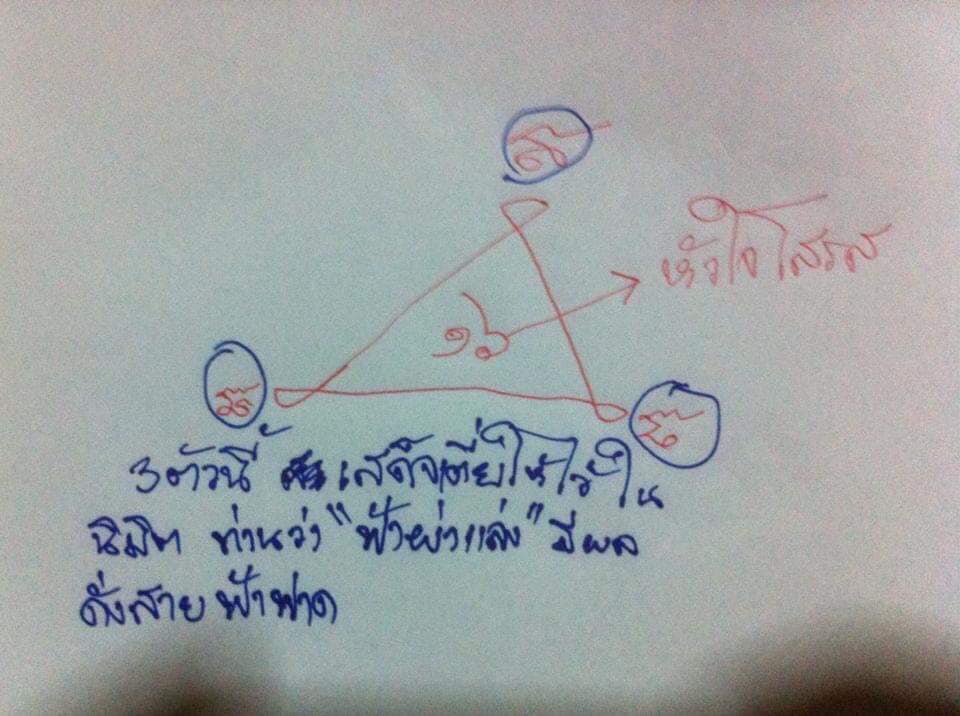 หัวใจโสรส
๑๖
3 ตัวนี้ เสด็จเตี่ยให้ไว้ใน
นิมิต ท่านว่า "ฟ้าผ่าแล่ง" มีผล
ดั่งสายฟ้าฟาด